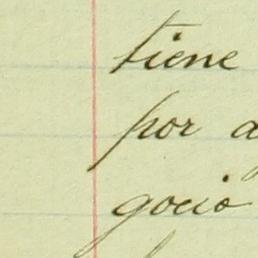 tiene
por a
gocio